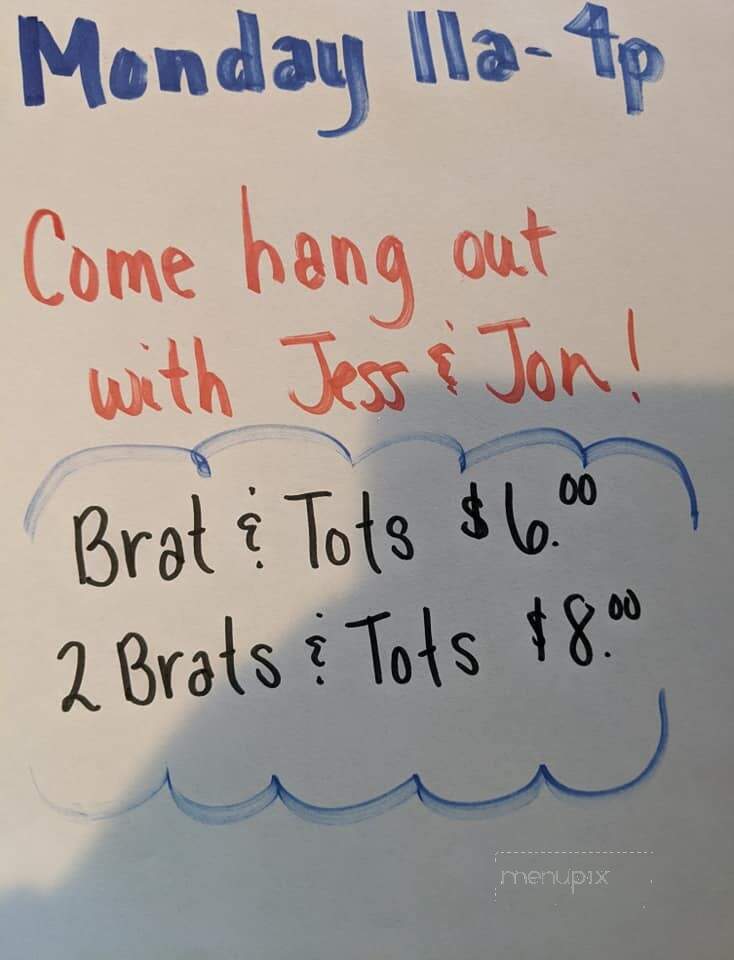 Monday 11a-4p
Come hang out
with Jess & Jon!
Brat & Tots $6.00
2 Brats & Tots $8.00
menupix